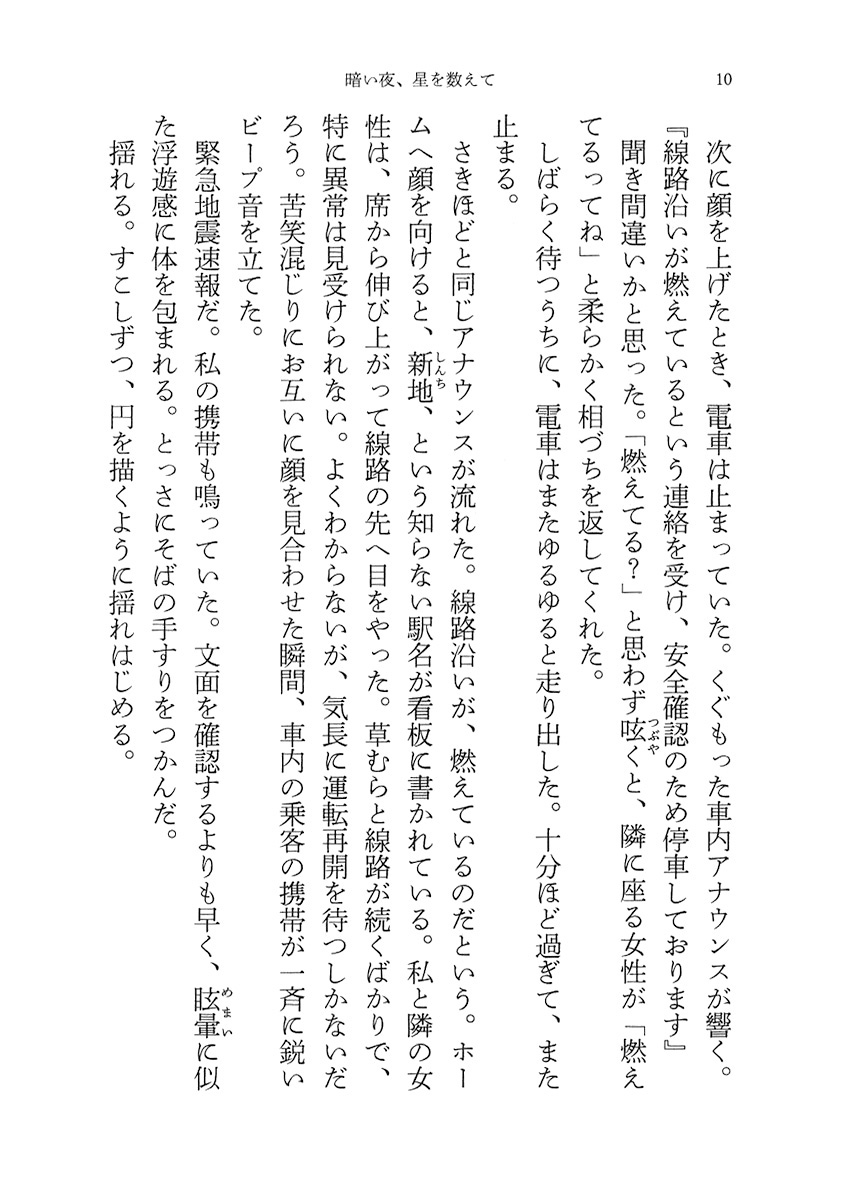 暗い夜、星を数えて
10
次に顔を上げたとき、電車は止まっていた。くぐもった車内アナウンスが響く。
『線路沿いが燃えているという連絡を受け、安全確認のため停車しております』
聞き間違いかと思った。「燃えてる？」と思わず呟くと、隣に座る女性が「燃え
てるってね」と柔らかく相づちを返してくれた。
しばらく待つうちに、電車はまたゆるゆると走り出した。十分ほど過ぎて、また
止まる。
さきほどと同じアナウンスが流れた。線路沿いが、燃えているのだという。ホー
ムへ顔を向けると、新地、という知らない駅名が看板に書かれている。私と隣の女
性は、席から伸び上がって線路の先へ目をやった。草むらと線路が続くばかりで、
特に異常は見受けられない。よくわからないが、気長に運転再開を待つしかないだ
ろう。苦笑混じりにお互いに顔を見合わせた瞬間、車内の乗客の携帯が一斉に鋭い
ビープ音を立てた。
緊急地震速報だ。私の携帯も鳴っていた。文面を確認するよりも早く、眩暈に似
た浮遊感に体を包まれる。とっさにそばの手すりをつかんだ。
揺れる。すこしずつ、円を描くように揺れはじめる。
つぶや
しんち
めまい